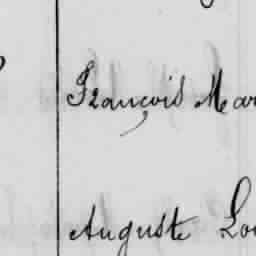 François Mar
Auguste Lou